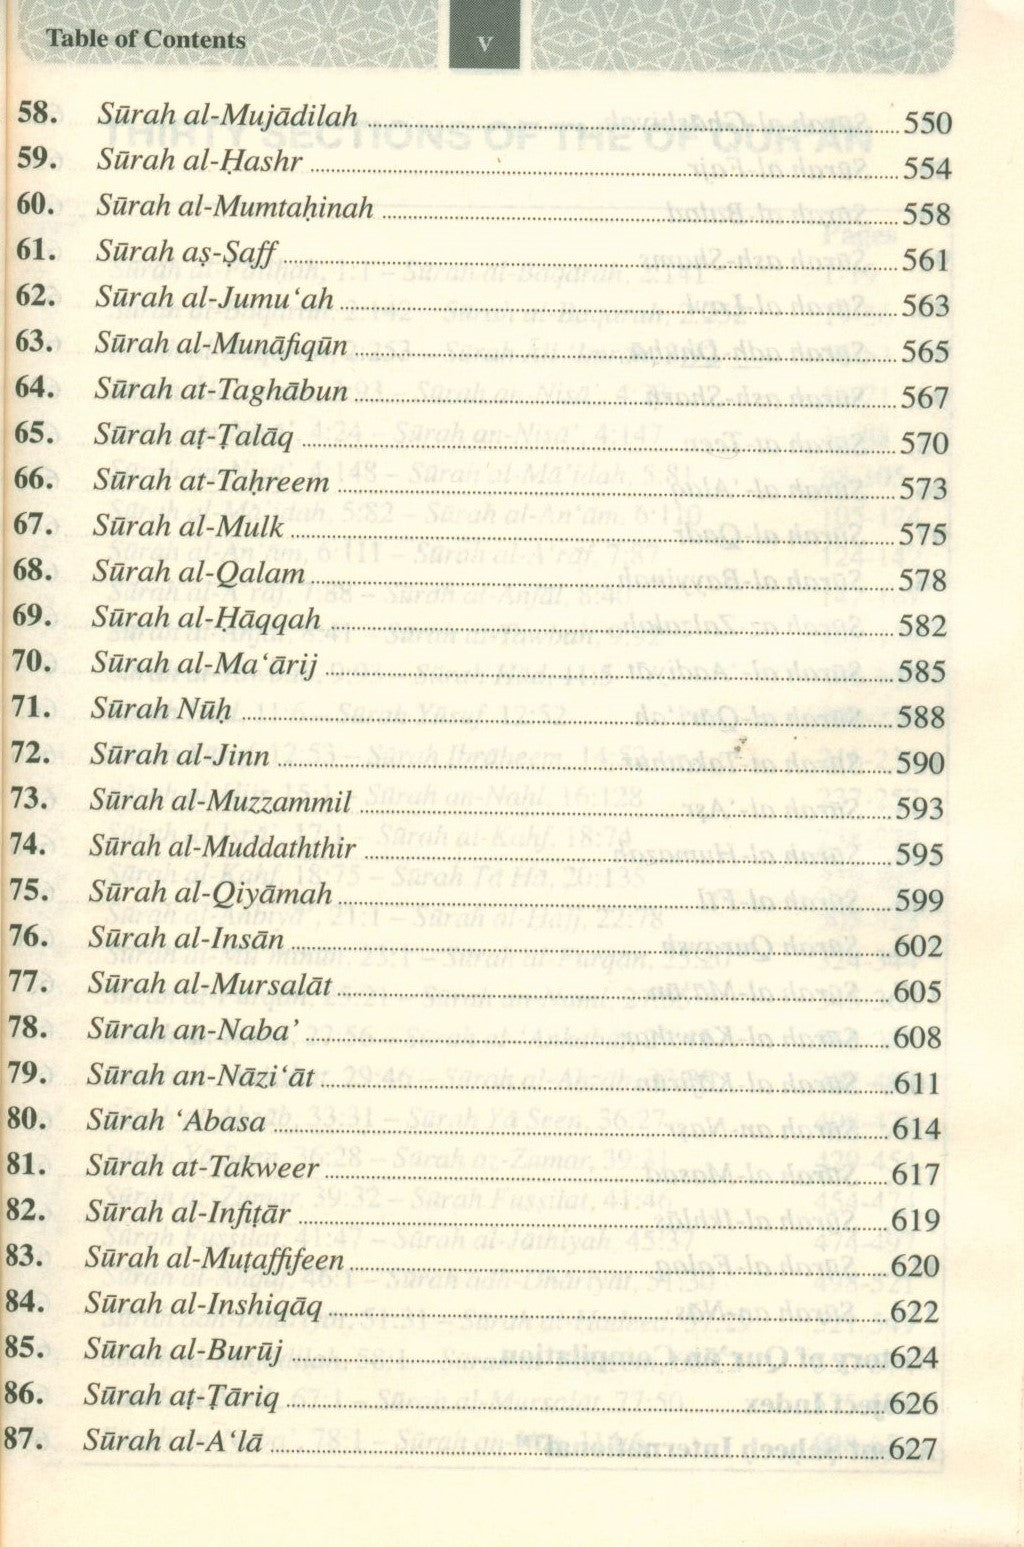 Table of Contents
v
58. Sūrah al-Mujādilah 550
59. Sūrah al-Ḥashr 554
60. Sūrah al-Mumtaḥinah 558
61. Sūrah aṣ-Ṣaff 561
62. Sūrah al-Jumu‘ah 563
63. Sūrah al-Munāfiqūn 565
64. Sūrah at-Taghābun 567
65. Sūrah aṭ-Ṭalāq 570
66. Sūrah at-Taḥreem 573
67. Sūrah al-Mulk 575
68. Sūrah al-Qalam 578
69. Sūrah al-Ḥāqqah 582
70. Sūrah al-Ma‘ārij 585
71. Sūrah Nūḥ 588
72. Sūrah al-Jinn 590
73. Sūrah al-Muzzammil 593
74. Sūrah al-Muddaththir 595
75. Sūrah al-Qiyāmah 599
76. Sūrah al-Insān 602
77. Sūrah al-Mursalāt 605
78. Sūrah an-Naba’ 608
79. Sūrah an-Nāzi‘āt 611
80. Sūrah ‘Abasa 614
81. Sūrah at-Takweer 617
82. Sūrah al-Infiṭār 619
83. Sūrah al-Muṭaffifeen 620
84. Sūrah al-Inshiqāq 622
85. Sūrah al-Burūj 624
86. Sūrah aṭ-Ṭāriq 626
87. Sūrah al-A‘lā 627